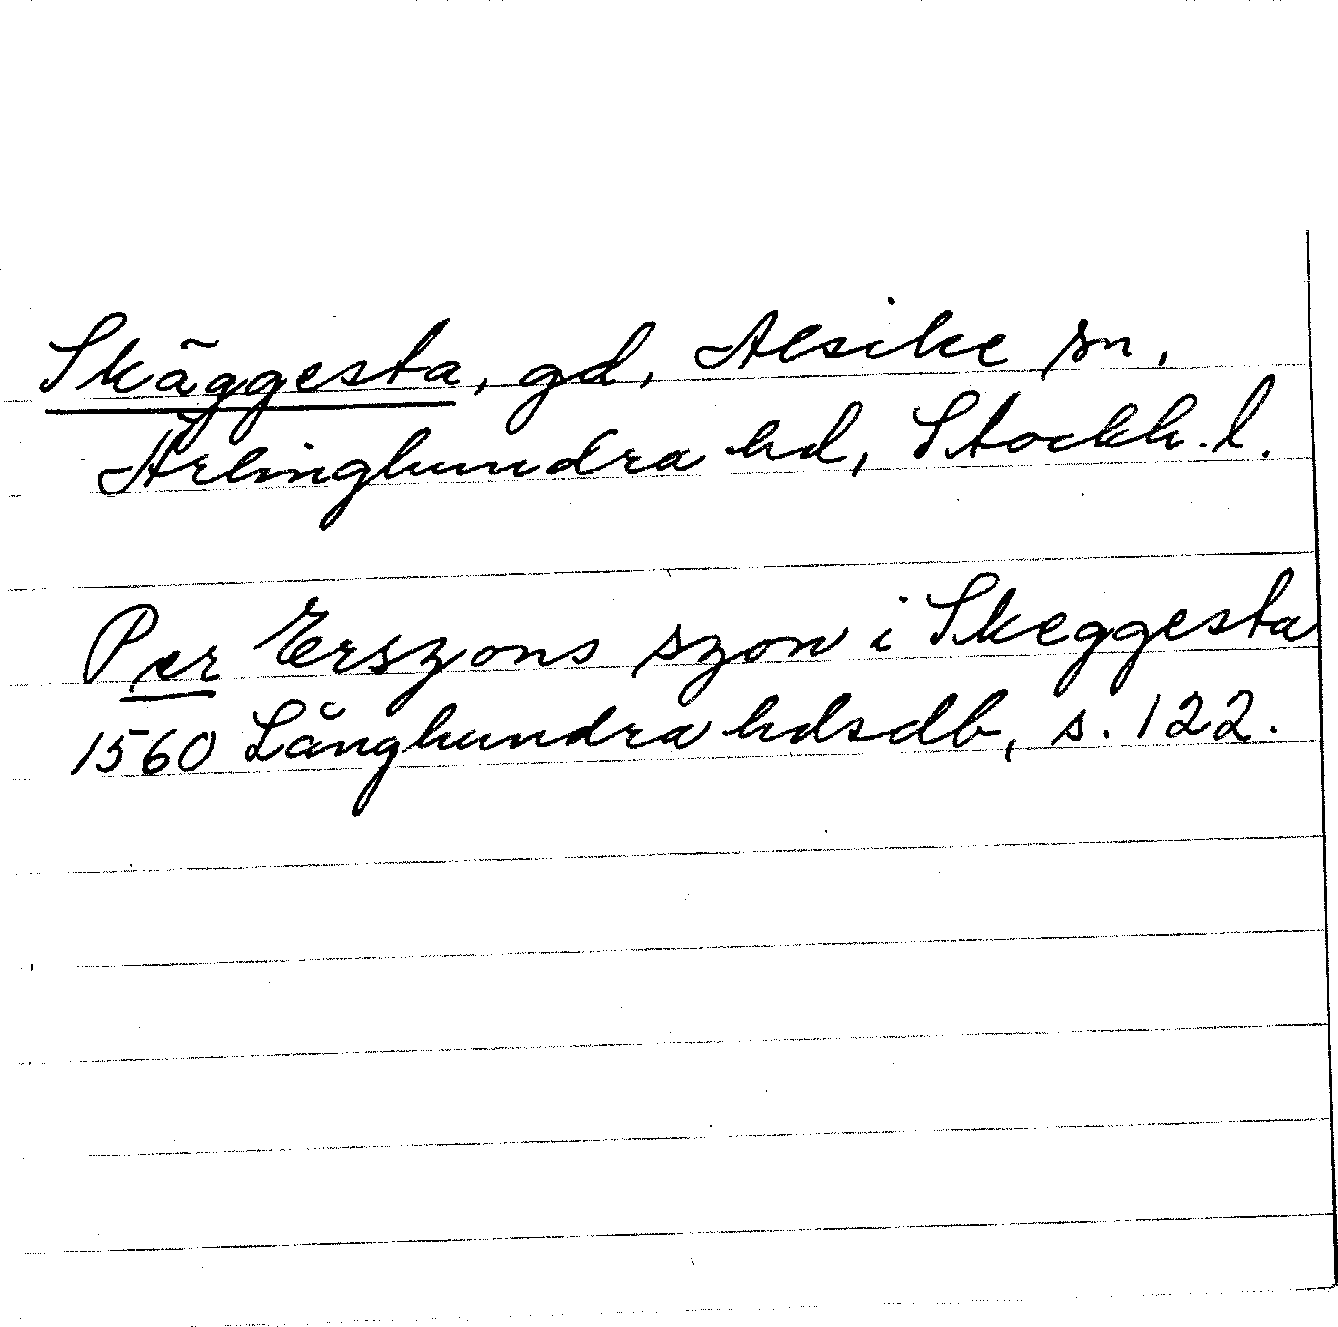 Skäggesta, gd, Alsike sn,
Ärlinghundra hd, Stockh. l.
Per Erszons szon i Skeggesta
1560 Långhundra hdsdb, s. 122.